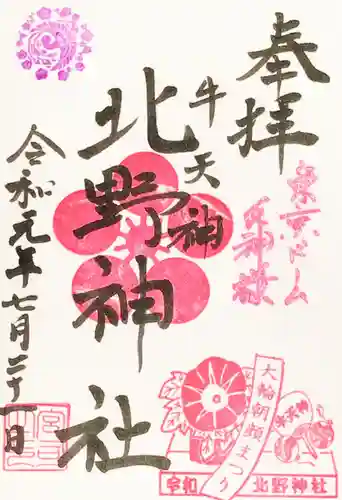 奉拝
東京ドーム
牛天神
北野神社
令和元年七月二十一日
大輪朝顔まつり
牛天神
令和
北野神社